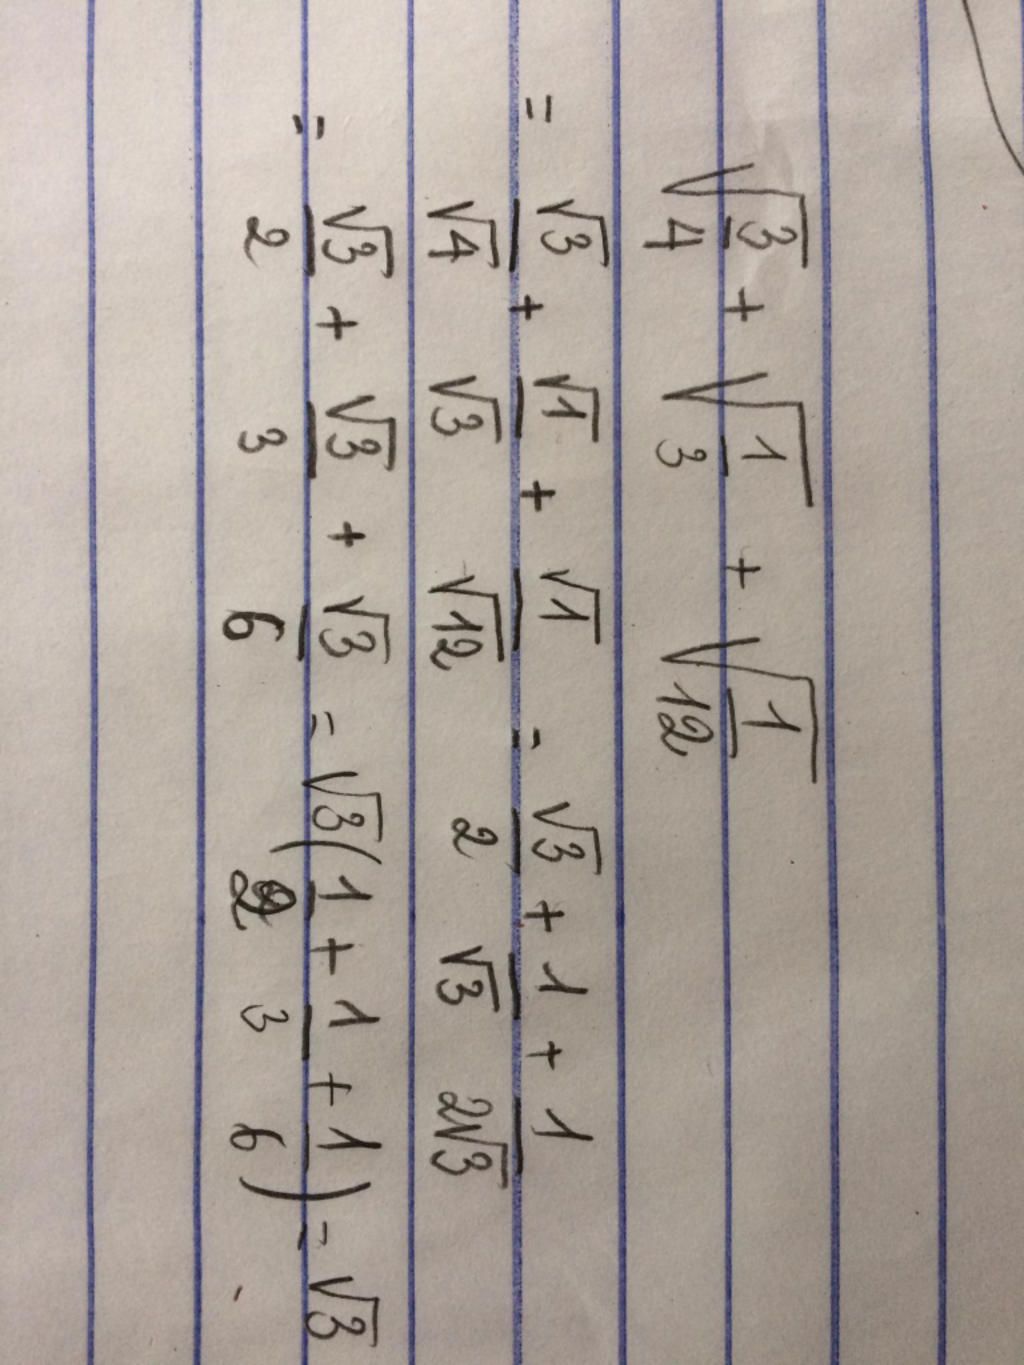 √(3/4) + √(1/3) + √(1/12)
= √3/√4 + √1/√3 + √1/√12 = √3/2 + 1/√3 + 1/2√3
= √3/2 + √3/3 + √3/6 = √3(1/2 + 1/3 + 1/6) = √3